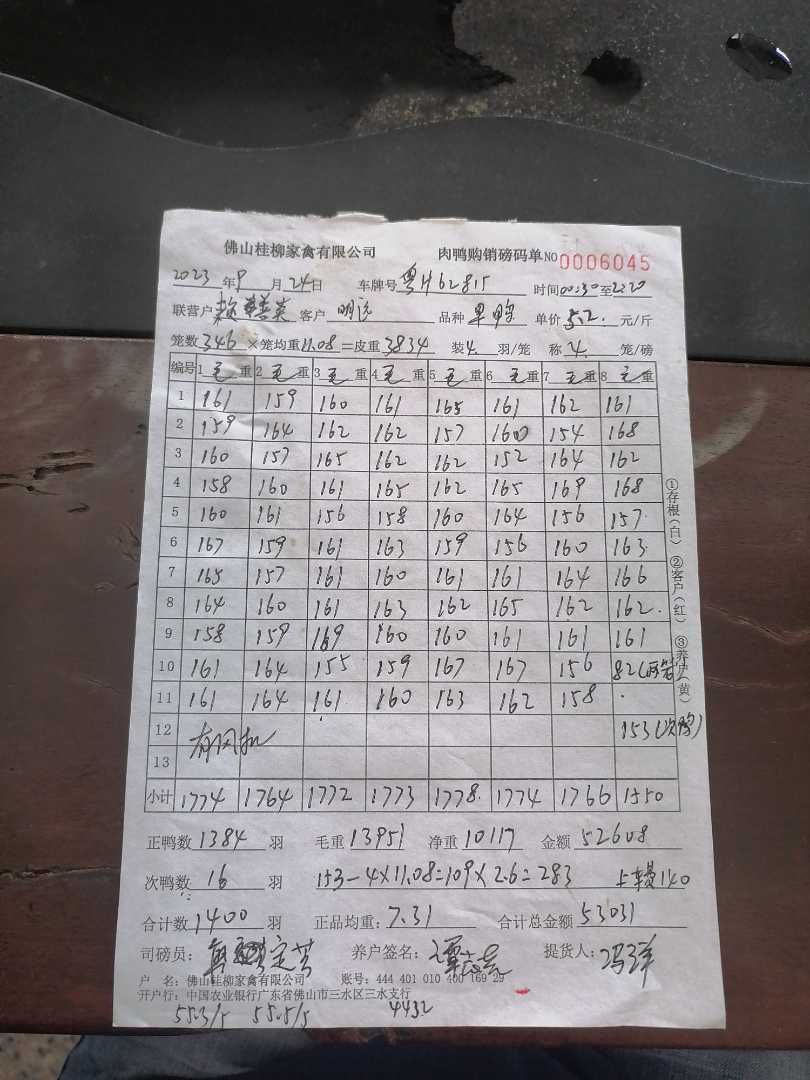 佛山桂柳家禽有限公司 肉鸭购销磅码单 NO 0006045
2023 年 9 月 24 日 车牌号 粤H62815 时间 00:30 至 2:20
联营户 客户 明记 品种 单价 5.2 元/斤
笼数 346 ×笼均重 11.08 =皮重 3834 装 4 羽/笼 称 4 笼/磅
编号 1 毛 重 2 毛 重 3 毛 重 4 毛 重 5 毛 重 6 毛 重 7 毛 重 8 毛 重
1 161 159 160 161 165 161 162 161
2 159 164 162 162 157 160 154 168
3 160 157 165 162 162 152 164 162
4 158 160 161 165 162 165 169 168
5 160 161 156 158 160 164 156 157
6 167 159 161 163 159 156 160 163
7 165 157 161 160 161 161 164 166
8 164 160 161 163 162 165 162 162
9 158 159 169 160 160 161 161 161
10 161 164 155 159 167 167 156 82(两笼)
11 161 164 161 160 163 162 158
12 有风机 153(次鸭)
13
小计 1774 1764 1772 1773 1778 1774 1766 1550
①存根(白) ②客户(红) ③养户(黄)
正鸭数 1384 羽 毛重 13951 净重 10117 金额 52608
次鸭数 16 羽 153-4×11.08=109×2.6=283 上车费140
合计数 1400 羽 正品均重: 7.31 合计总金额 53031
司磅员: 养户签名: 提货人:
户 名: 佛山桂柳家禽有限公司 账号: 444 401 010 400 169 29
开户行: 中国农业银行广东省佛山市三水区三水支行
55.3/5 55.5/5 4432